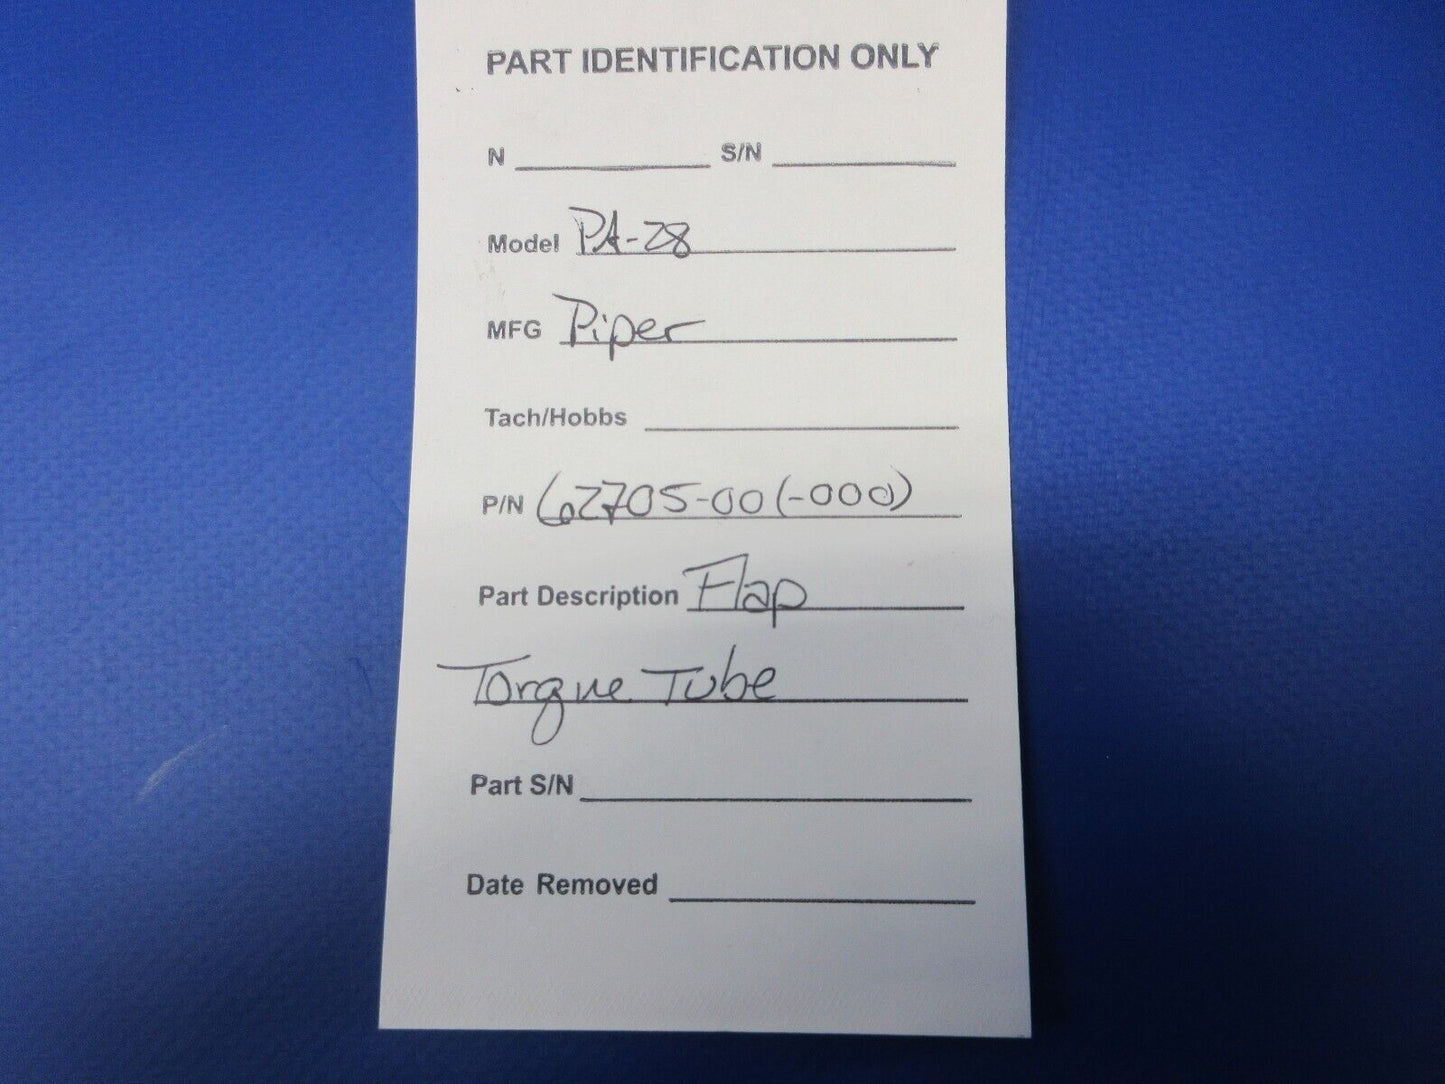 PART IDENTIFICATION ONLY
N __________ S/N __________
Model PA-28
MFG Piper
Tach/Hobbs __________
P/N 62705-00(-000)
Part Description Flap
Torque Tube
Part S/N __________
Date Removed __________